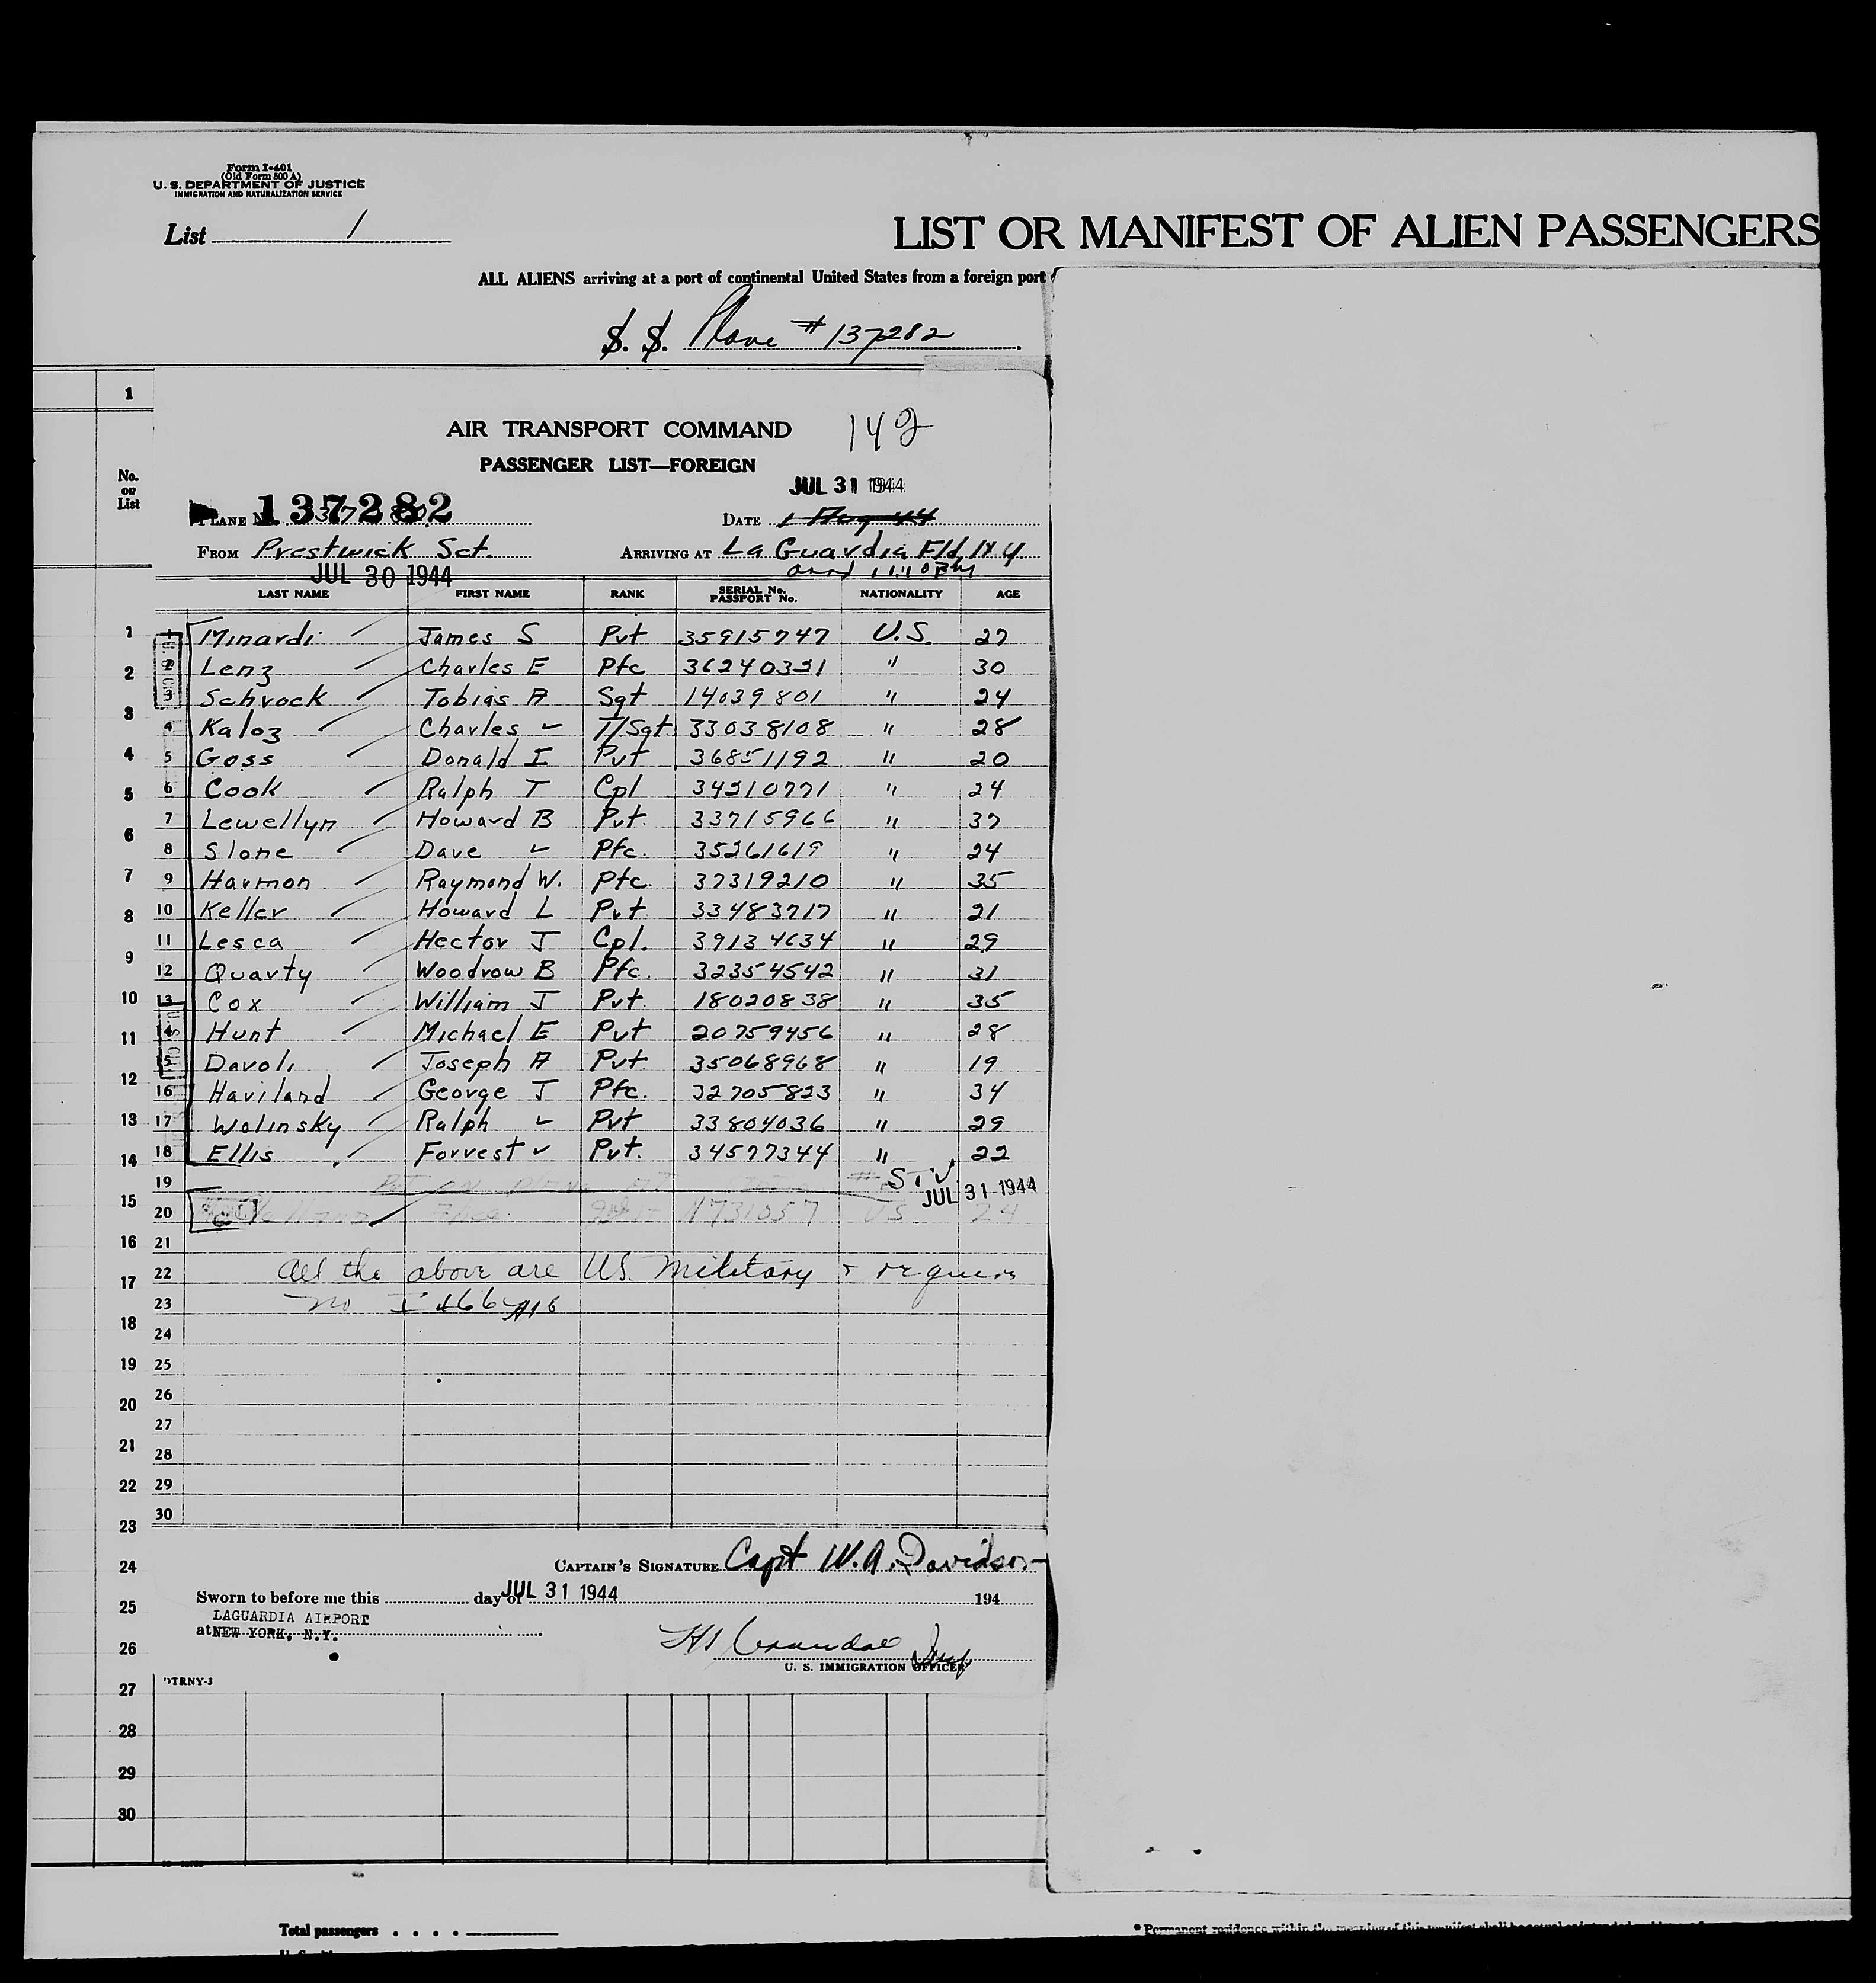 Form I-401
(Old Form 500 A)
U. S. DEPARTMENT OF JUSTICE
IMMIGRATION AND NATURALIZATION SERVICE
List 1
LIST OR MANIFEST OF ALIEN PASSENGERS
ALL ALIENS arriving at a port of continental United States from a foreign port
S. S. Plane # 137282
1
No. on List
AIR TRANSPORT COMMAND
PASSENGER LIST—FOREIGN
JUL 31 1944
PLANE No. 137282
DATE 1 Aug 44
FROM Prestwick Sct.
ARRIVING AT La Guardia Fld, N Y
JUL 30 1944
LAST NAME FIRST NAME RANK SERIAL No. PASSPORT No. NATIONALITY AGE
1 Minardi James S Pvt 35915747 U.S. 27
2 Lenz Charles E Pfc 36240321 " 30
3 Schrock Tobias A Sgt 14039801 " 24
4 Kaloz Charles T/Sgt 33038108 " 28
5 Goss Donald I Pvt 36851192 " 20
6 Cook Ralph T Cpl 34210771 " 24
7 Lewellyn Howard B Pvt. 33715966 " 37
8 Slone Dave Pfc. 35261619 " 24
9 Harmon Raymond W. Pfc. 37319210 " 35
10 Keller Howard L Pvt. 33483717 " 21
11 Lesca Hector J Cpl. 39134634 " 29
12 Quarty Woodrow B Pfc. 32354542 " 31
13 Cox William J Pvt. 18020838 " 35
14 Hunt Michael E Pvt 20759456 " 28
15 Davoli Joseph A Pvt. 35068968 " 19
16 Haviland George J Pfc. 32705823 " 34
17 Wolinsky Ralph Pvt 33804036 " 29
18 Ellis Forrest Pvt. 34577344 " 22
19
JUL 31 1944
20 N731057 US 24
21
22 All the above are US. Military
23 no I 466
24
25
26
27
28
29
30
CAPTAIN'S SIGNATURE Capt W. A. Davidson
Sworn to before me this day of JUL 31 1944 194
LAGUARDIA AIRPORT
at NEW YORK, N.Y.
U. S. IMMIGRATION OFFICER
DTRNY-J
1
2
3
4
5
6
7
8
9
10
11
12
13
14
15
16
17
18
19
20
21
22
23
24
25
26
27
28
29
30
Total passengers . . . .
* Permanent residence within the meaning of this manifest shall be